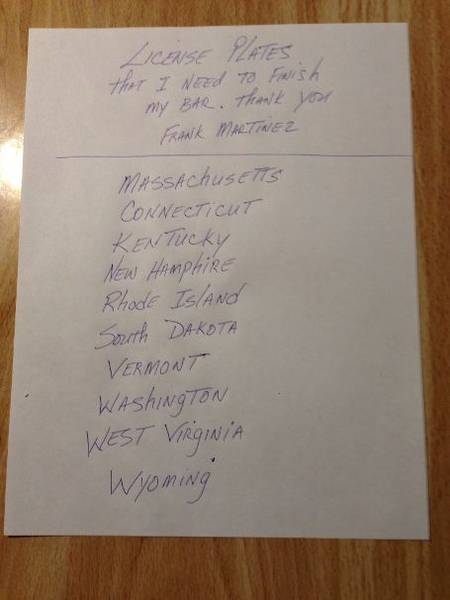 LICENSE PLATES
that I NEED TO FINISH
my BAR. THANK YOU
FRANK MARTINEZ
MASSACHUSETTS
CONNECTICUT
KENTUCKY
NEW HAMPHIRE
Rhode Island
South DAKOTA
VERMONT
WASHINGTON
WEST VIRGINIA
WYOMING